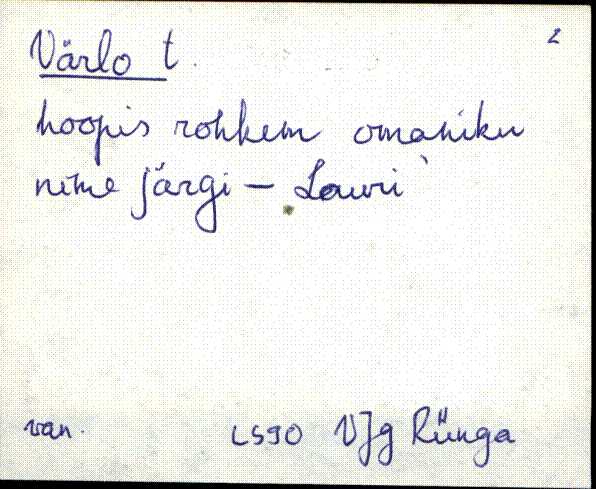 Värlo t. 2
hoopis rohkem omaniku
nime järgi – Lauri`
van. LS90 VJg Rünga